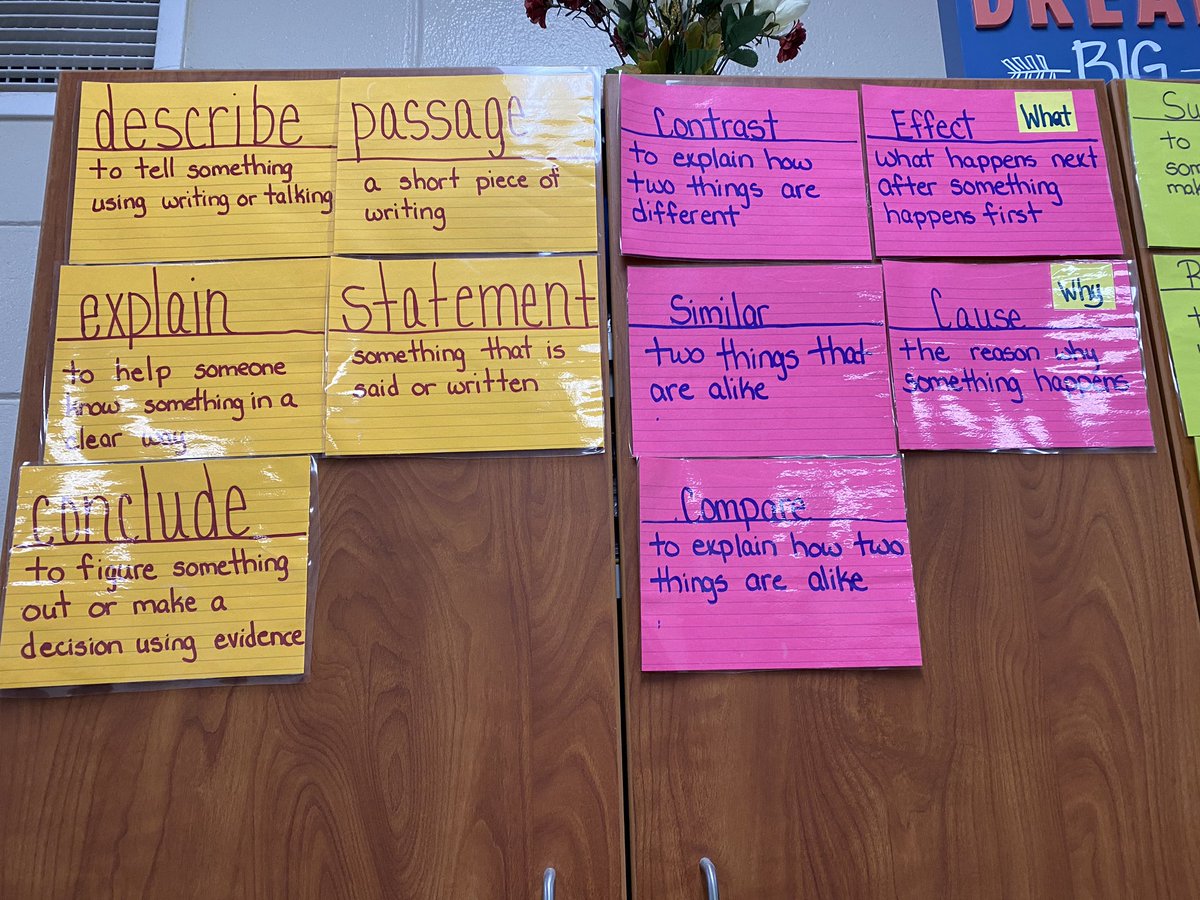 DREA
BIG
describe
to tell something
using writing or talking
passage
a short piece of
writing
explain
to help someone
know something in a
clear way
statement
something that is
said or written
conclude
to figure something
out or make a
decision using evidence
Contrast
to explain how
two things are
different
Effect
What
what happens next
after something
happens first
Similar
two things that
are alike
Cause
Why
the reason why
something happens
Compare
to explain how two
things are alike
Su
to
som
mak